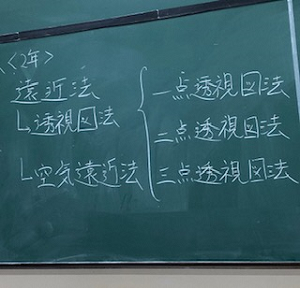 <2年>
遠近法
└透視図法
└空気遠近法
一点透視図法
二点透視図法
三点透視図法